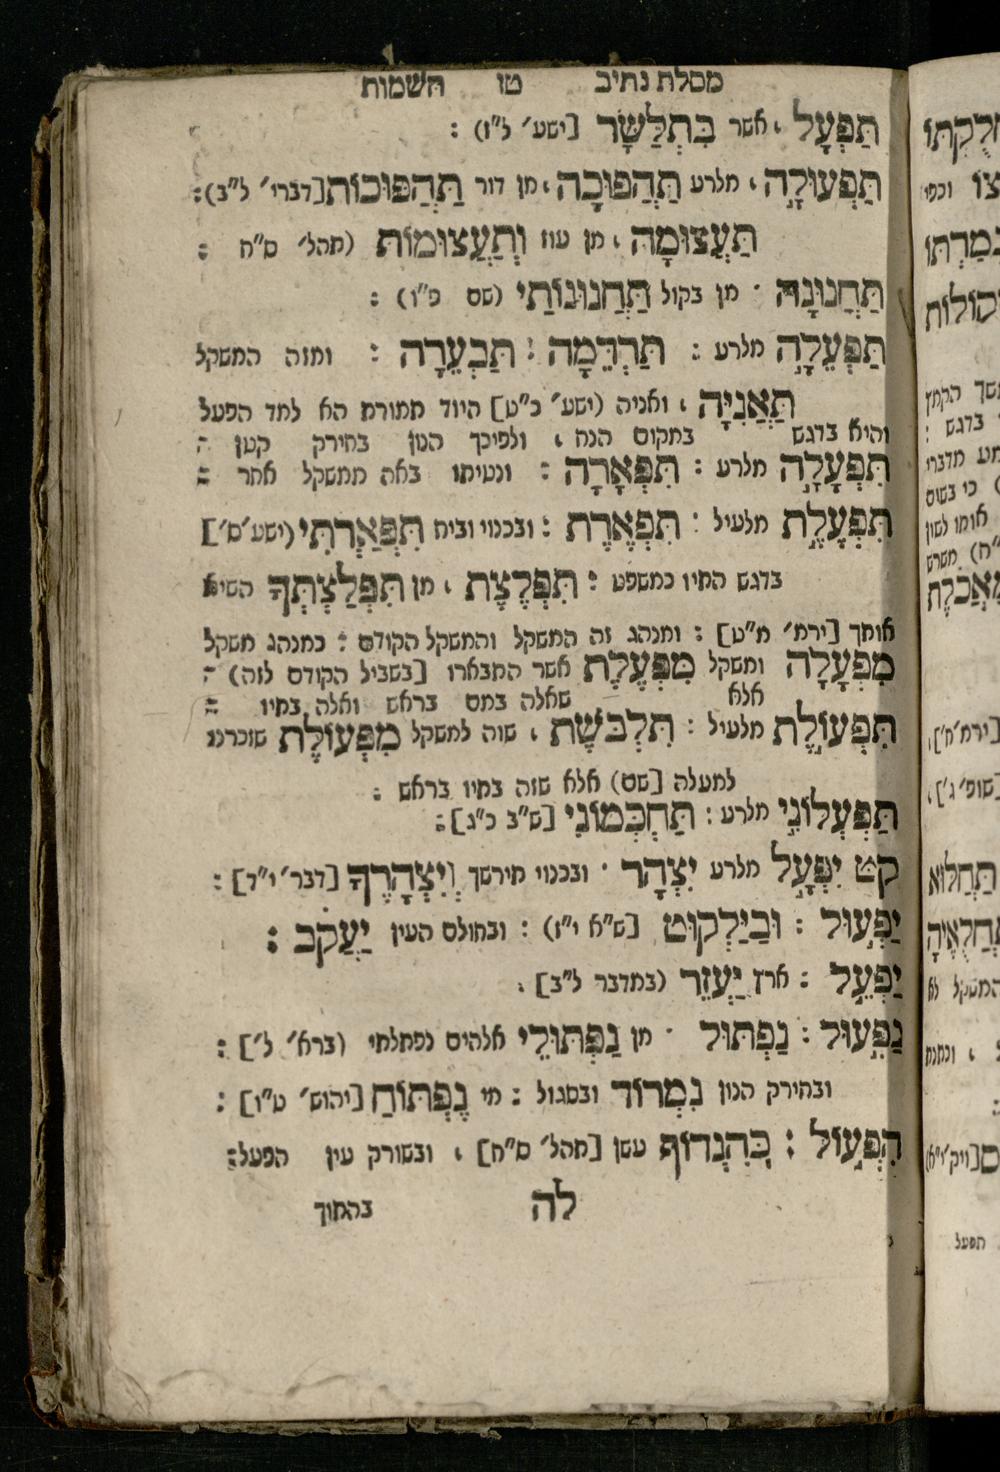 מסלת נתיב טו השמות
תַּפְעָל , אשר בִּתְלַשָּׂר [ישע׳ ל״ז) :
תַּפְעוּלָה , מלרע תַּהֲפוּכָה , מן דור תַּהֲפוּכוֹת [דברי׳ ל״ב) :
תַּעֲצוּמָה , מן עוז וְתַעֲצוּמוֹת (תהל׳ ס״ח :
תַּחֲנוּנָה · מן בקול תַּחֲנוּנוֹתַי (שם פ״ו) :
תַּפְעֵלָה מלרע : תַּרְדֵּמָה : תַּבְעֵרָה : ומזה המשקל
תַּאֲנִיָּה , ואניה (ישע׳ כ״ט] היוד תמורת הא למד הפעל
והיא בדגש במקום הנח , ולפיכך הנון בחירק קטן :
תִּפְעָלָה מלרע : תִּפְאָרָה : ונטיתו באה ממשקל אחר :
תִּפְעֶלֶת מלעיל : תִּפְאֶרֶת : ובכנוי ובית תִּפְאַרְתִּי (ישע׳ ס׳]
בדגש התיו כמשפט : תִּפְלֶצֶת , מן תִּפְלַצְתְּךָ השיא
אותך [ירמ׳ מ״ט] : ומנהג זה המשקל והמשקל הקודם : כמנהג משקל
מִפְעָלָה ומשקל מִפְעֶלֶת אשר התבארו [בשביל הקודם לזה) :
אלא שאלה במם בראש ואלה בתיו :
תִּפְעוֹלֶת מלעיל : תִּלְבֹּשֶׁת , שוה למשקל מִפְעוֹלֶת שזכרנו
למעלה [שם) אלא שזה בתיו בראש :
תַּפְעְלוֹנִי מלרע : תַּחְכְּמוֹנִי [ש״ב כ״ג] :
קט יִפְעָל מלרע יִצְהָר · ובכנוי תירשך וְיִצְהָרֶךָ [דבר׳ י״ד] :
יַפְעוּל : וּבַיַּלְקוּט [ש״א י״ז) : ובחולם העין יַעֲקֹב :
יַפְעֵל : ארץ יַעְזֵר (במדבר ל״ב] .
נַפְעוּל : נַפְתּוּל · מן נַפְתּוּלֵי אלהים נפתלתי (ברא׳ ל׳] :
ובחירק הנון נִמְרוֹד ובסגול : מי נֶפְתּוֹחַ [יהוש׳ ט״ו] :
הִפְעוֹל : כְּהִנְדוֹף עשן [תהל׳ ס״ח] , ובשורק עין הפעל :
לה בהתוך